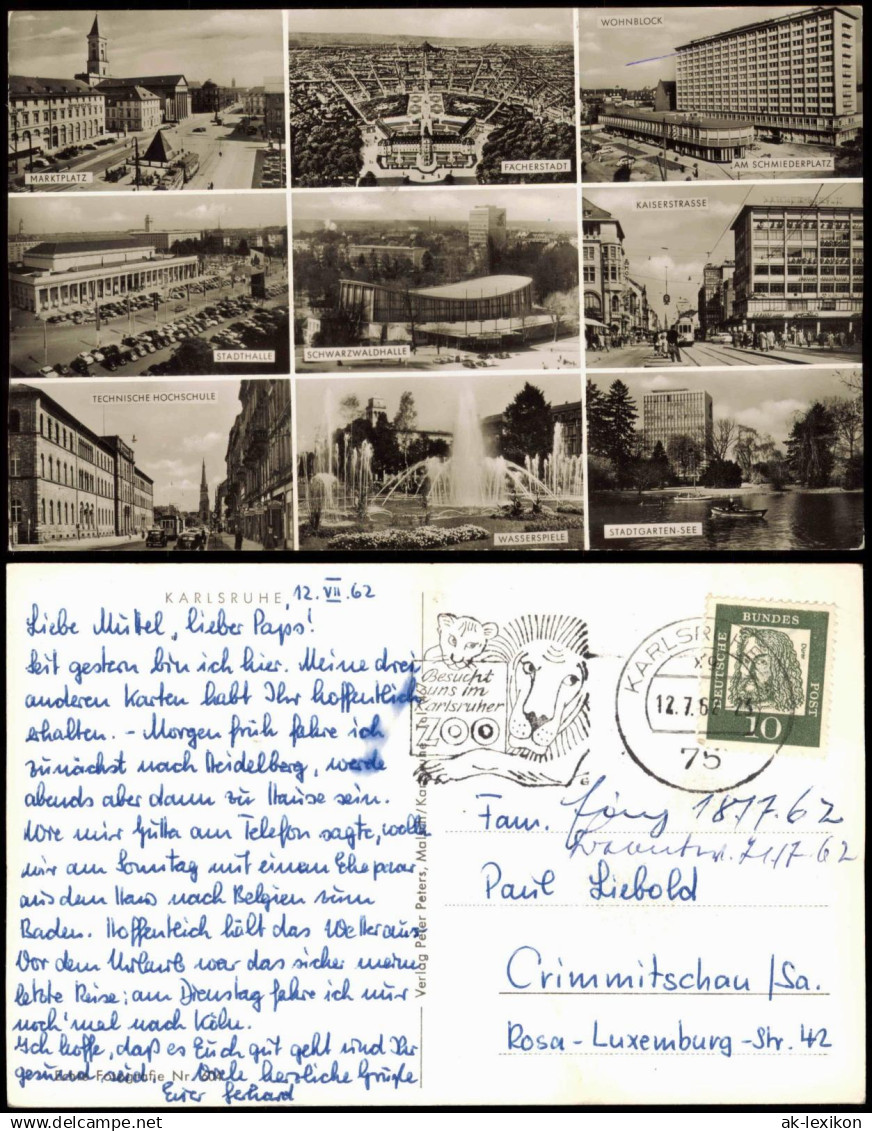 MARKTPLATZ
FÄCHERSTADT
WOHNBLOCK
AM SCHMIEDERPLATZ
STADTHALLE
SCHWARZWALDHALLE
KAISERSTRASSE
TECHNISCHE HOCHSCHULE
WASSERSPIELE
STADTGARTEN-SEE
KARLSRUHE, 12. VII. 62
Liebe Muttel, lieber Paps!
Seit gestern bin ich hier. Meine drei
anderen Karten habt Ihr hoffentlich
erhalten. - Morgen früh fahre ich
zunächst nach Heidelberg, werde
abends aber dann zu Hause sein.
Wie mir Gutta am Telefon sagte, wollen
wir am Sonntag mit einem Ehepaar
aus dem Haus nach Belgien zum
Baden. Hoffentlich hält das Wetter aus.
Vor dem Urlaub war das sicher meine
letzte Reise; am Dienstag fahre ich nur
noch'mal nach Köln.
Ich hoffe, daß es Euch gut geht und Ihr
gesund seid. Viele herzliche Grüße
Euer Gerhard
Echte Fotografie Nr.
Verlag Peter Peters,
Besucht
uns im
Karlsruher
ZOO
KARLSRUHE
12.7.62
75
DEUTSCHE BUNDESPOST
Dürer
10
Fam.
18/7.62
21/7.62
Paul Liebold
Crimmitschau/Sa.
Rosa-Luxemburg-Str. 42
ak-lexikon.com